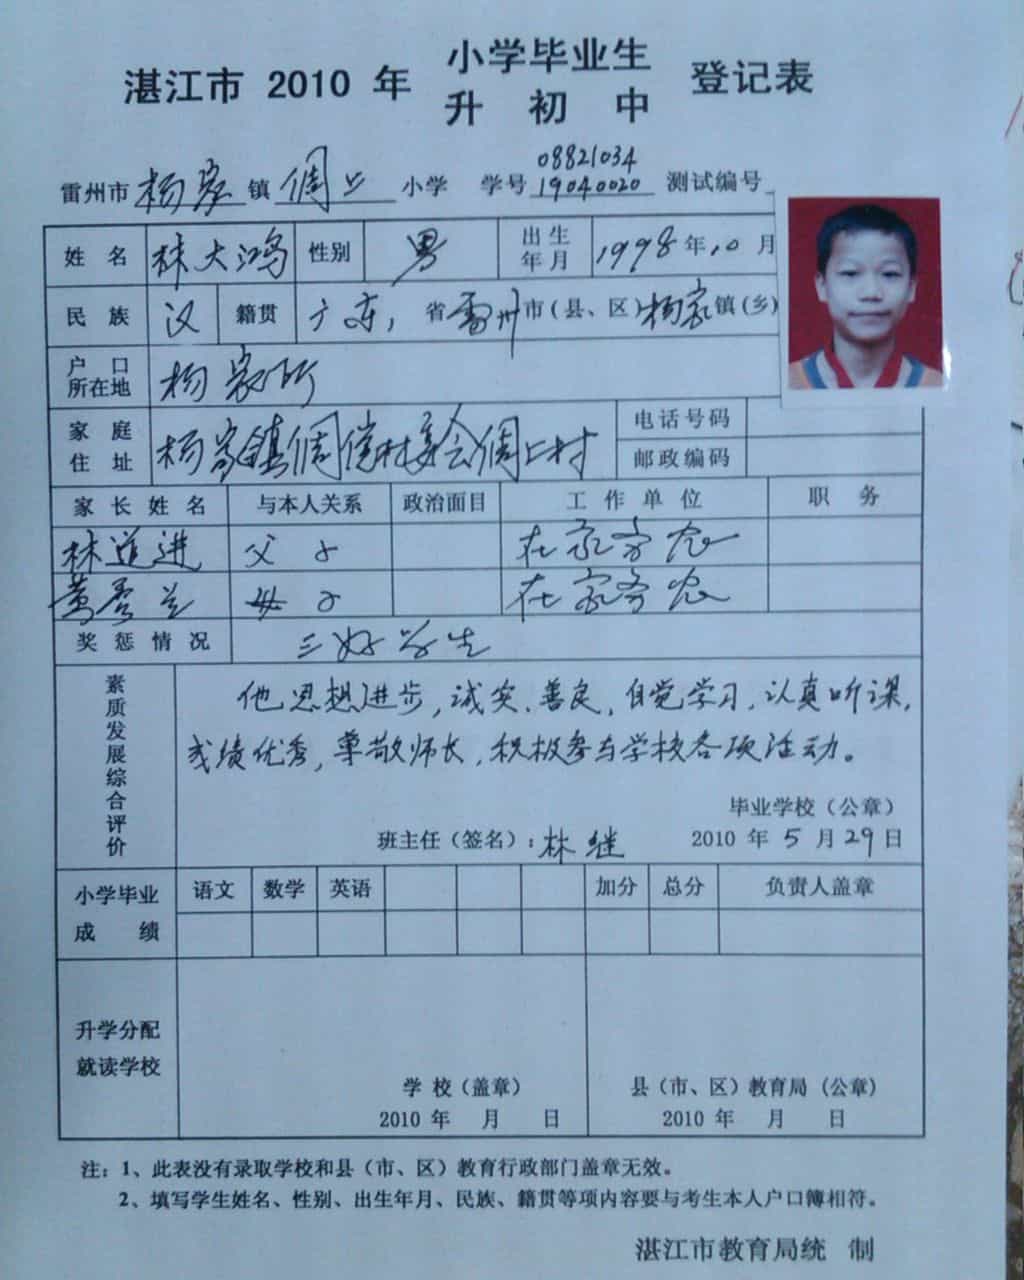 湛江市 2010 年 小学毕业生 登记表
升 初 中
08821034
雷州市杨家镇倜上小学 学号 19040020 测试编号
姓 名 林大鸿 性别 男 出生年月 1998年10月
民 族 汉 籍贯 广东, 省雷州市(县、区)杨家镇(乡)
户 口 所在地 杨家所
家 庭 住 址 杨家镇倜傥村委会倜上村 电话号码
邮政编码
家 长 姓 名 与本人关系 政治面目 工 作 单 位 职 务
林道进 父子 在家务农
黄秀兰 母子 在家务农
奖 惩 情 况 三好学生
素质发展综合评价
他思想进步,诚实、善良,自觉学习,认真听课,
成绩优秀,尊敬师长,积极参与学校各项活动。
毕业学校(公章)
班主任(签名):林继 2010 年 5 月 29日
小学毕业 成 绩 语文 数学 英语 加分 总分 负责人盖章
升学分配
就读学校
学 校(盖章) 县(市、区)教育局 (公章)
2010 年 月 日 2010 年 月 日
注: 1、此表没有录取学校和县(市、区)教育行政部门盖章无效。
2、填写学生姓名、性别、出生年月、民族、籍贯等项内容要与考生本人户口簿相符。
湛江市教育局统 制